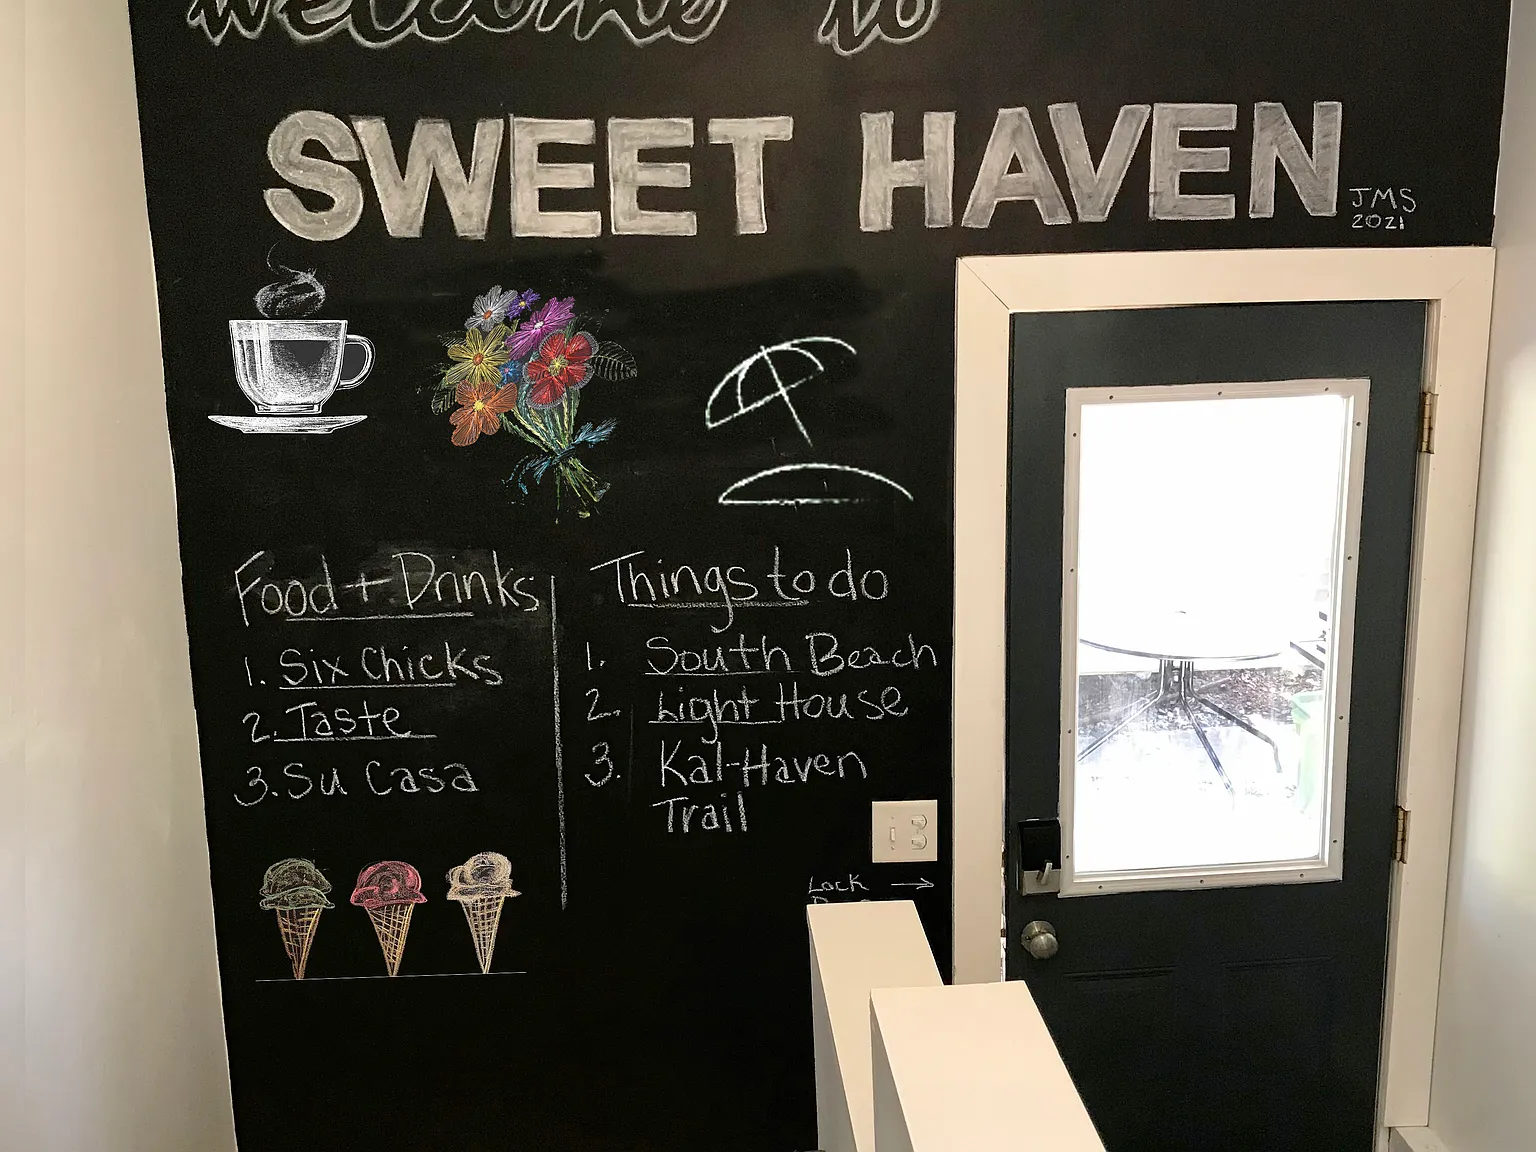 welcome to
SWEET HAVEN
JMS
2021
Food + Drinks
1. Six Chicks
2. Taste
3. Su Casa
Things to do
1. South Beach
2. Light House
3. Kal-Haven
Trail
Lock →